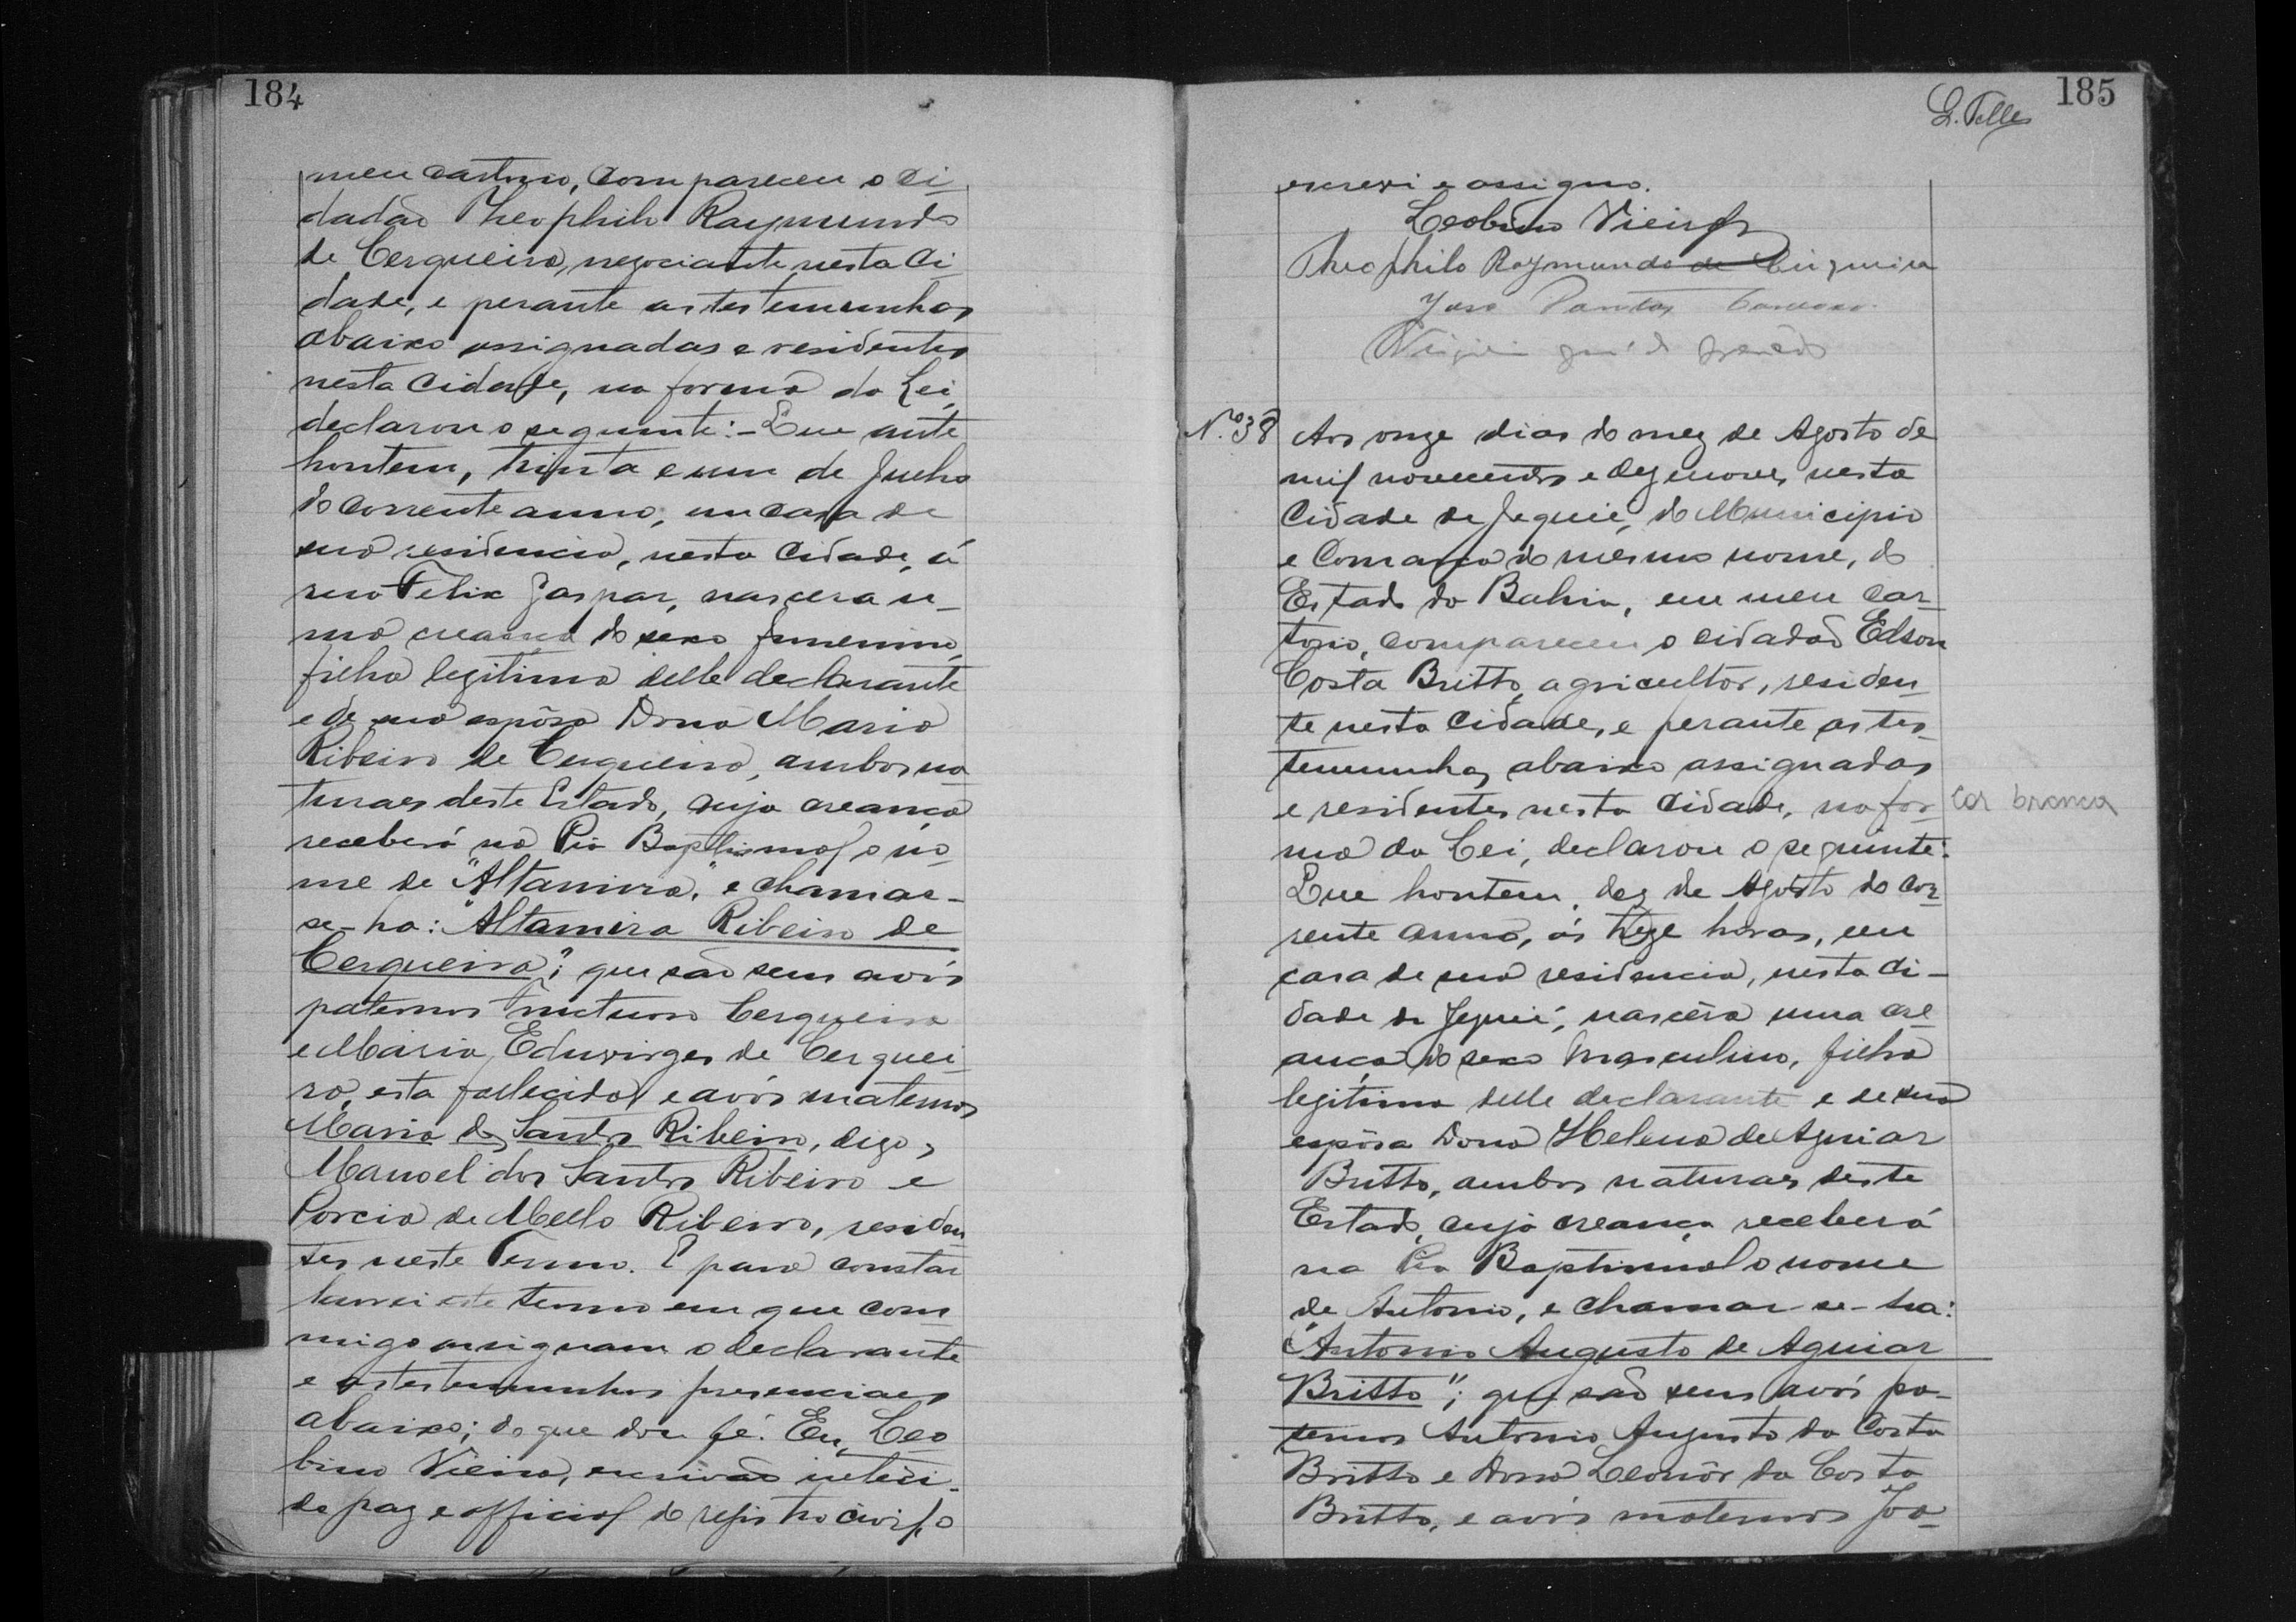 184
meu cartorio, compareceu o ci
dadão Theophilo Raymundo
de Cerqueira, negociante nesta ci
dade, e perante as testemunhas
abaixo assignadas e residentes
nesta cidade, na forma da Lei,
declarou o seguinte: - Que ante
hontem, trinta e um de Julho
do corrente anno, em casa de
sua residencia, nesta cidade, á
rua Felix Gaspar, nascera u-
ma creança do sexo femenino,
filha legitima delle declarante
e de sua espôsa Dona Maria
Ribeiro de Cerqueira, ambos na
turaes deste Estado, cuja creança
receberá na Pia Baptismal o no-
me de "Altamira," e chamar-
se-ha: "Altamira Ribeiro de
Cerqueira"; que são seus avós
paternos Fructuoso Cerqueira
e Maria Eduvirges de Cerquei
ra, esta fallecida, e avós maternos
Maria dos Santos Ribeiro, digo,
Manoel dos Santos Ribeiro e
Porcia de Mello Ribeiro, residen
tes neste Termo. E para constar
lavrei este termo em que com
migo assignam o declarante
e as testemunhas presenciaes
abaixo; do que dou fé. Eu, Leo
bino Vieira, escrivão
de paz e official do registro civil, o
185
L. Telles
escrevi e assigno.
Leobino Vieira
Theophilo Raymundo de Cirqueira
José Cardoso.
Nº 38 Aos onze dias do mez de Agosto de
mil novecentos e dezenove, nesta
Cidade de Jequié, do Municipio
e Comarca do mesmo nome, do
Estado da Bahia, em meu car-
torio, compareceu o cidadão Edson
Costa Britto, agricultor, residen
te nesta cidade, e perante as tes-
temunhas abaixo assignadas
e residentes nesta cidade, na for-
cor branca
ma da Lei, declarou o seguinte:
Que hontem, dez de Agosto do cor-
rente anno, ás treze horas, em
casa de sua residencia, nesta ci-
dade de Jequié, nascêra uma cre-
ança do sexo masculino, filha
legitima delle declarante e de sua
espôsa Dona Helena de Aguiar
Britto, ambos naturaes deste
Estado, cuja creança receberá
na Pia Baptismal o nome
de Antonio, e chamar-se-ha:
"Antonio Augusto de Aguiar
Britto"; que são seus avós pa-
ternos Antonio Augusto da Costa
Britto e Dona Leonôr da Costa
Britto, e avós maternos Joa-